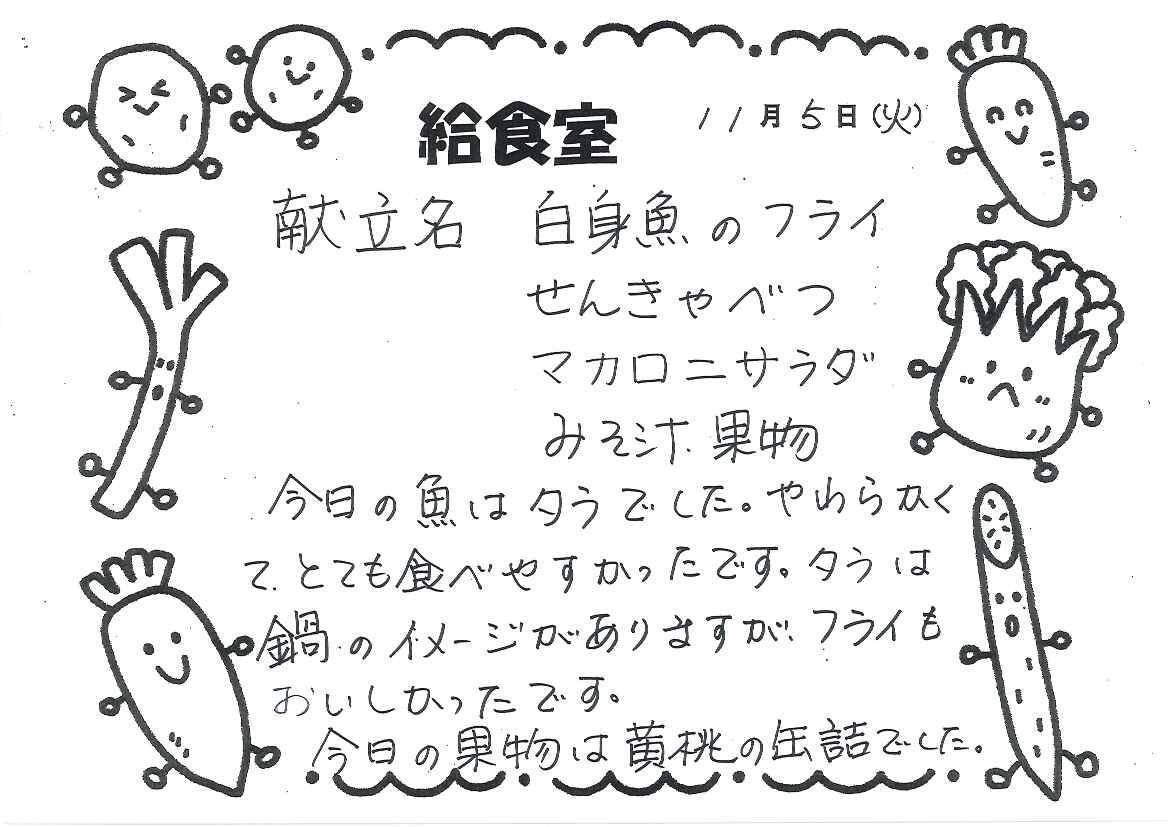 給食室 11月5日(火)
献立名 白身魚のフライ
せんきゃべつ
マカロニサラダ
みそ汁 果物
今日の魚はタラでした。やわらかく
て、とても食べやすかったです。タラは
鍋のイメージがありますが、フライも
おいしかったです。
今日の果物は黄桃の缶詰でした。